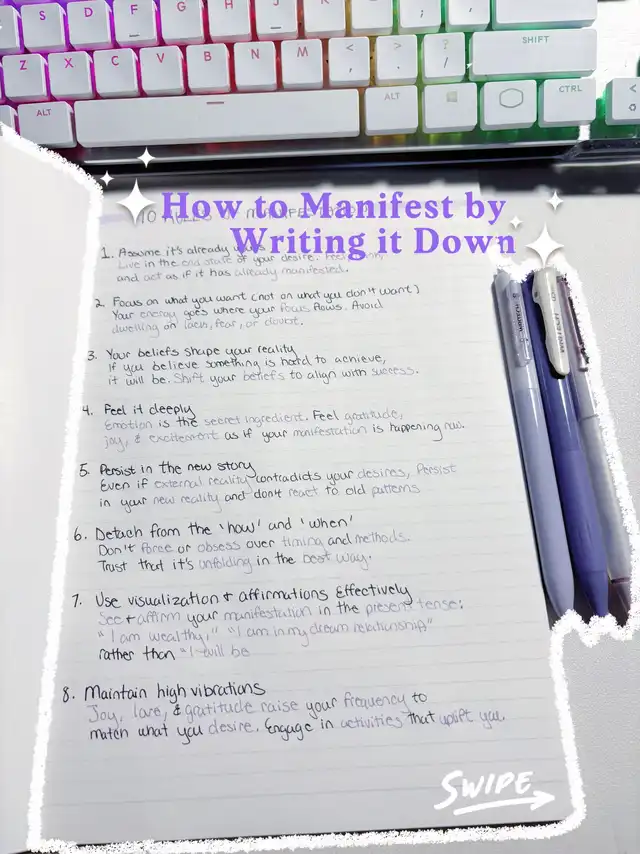 S D F G H J K L ; ,
Z X C V B N M < , > . ? / SHIFT
ALT ALT CTRL
How to Manifest by
Writing it Down
1. Assume it's already
Live in the end state of your desire. Feel
and act as if it has already manifested.
2. Focus on what you want (not on what you don't want)
Your energy goes where your focus flows. Avoid
dwelling on lack, fear, or doubt.
3. Your beliefs shape your reality
If you believe something is hard to achieve,
it will be. Shift your beliefs to align with success.
4. Feel it deeply
Emotion is the secret ingredient. Feel gratitude,
joy, & excitement as if your manifestation is happening now.
5. Persist in the new story
Even if external reality contradicts your desires, Persist
in your new reality and don't react to old patterns
6. Detach from the 'how' and 'when'
Don't force or obsess over timing and methods.
Trust that it's unfolding in the best way.
7. Use visualization + affirmations Effectively
See + affirm your manifestation in the present tense:
"I am wealthy," "I am in my dream relationship"
rather than "I will be
8. Maintain high vibrations
Joy, love, & gratitude raise your frequency to
match what you desire. Engage in activities that uplift you.
SWIPE